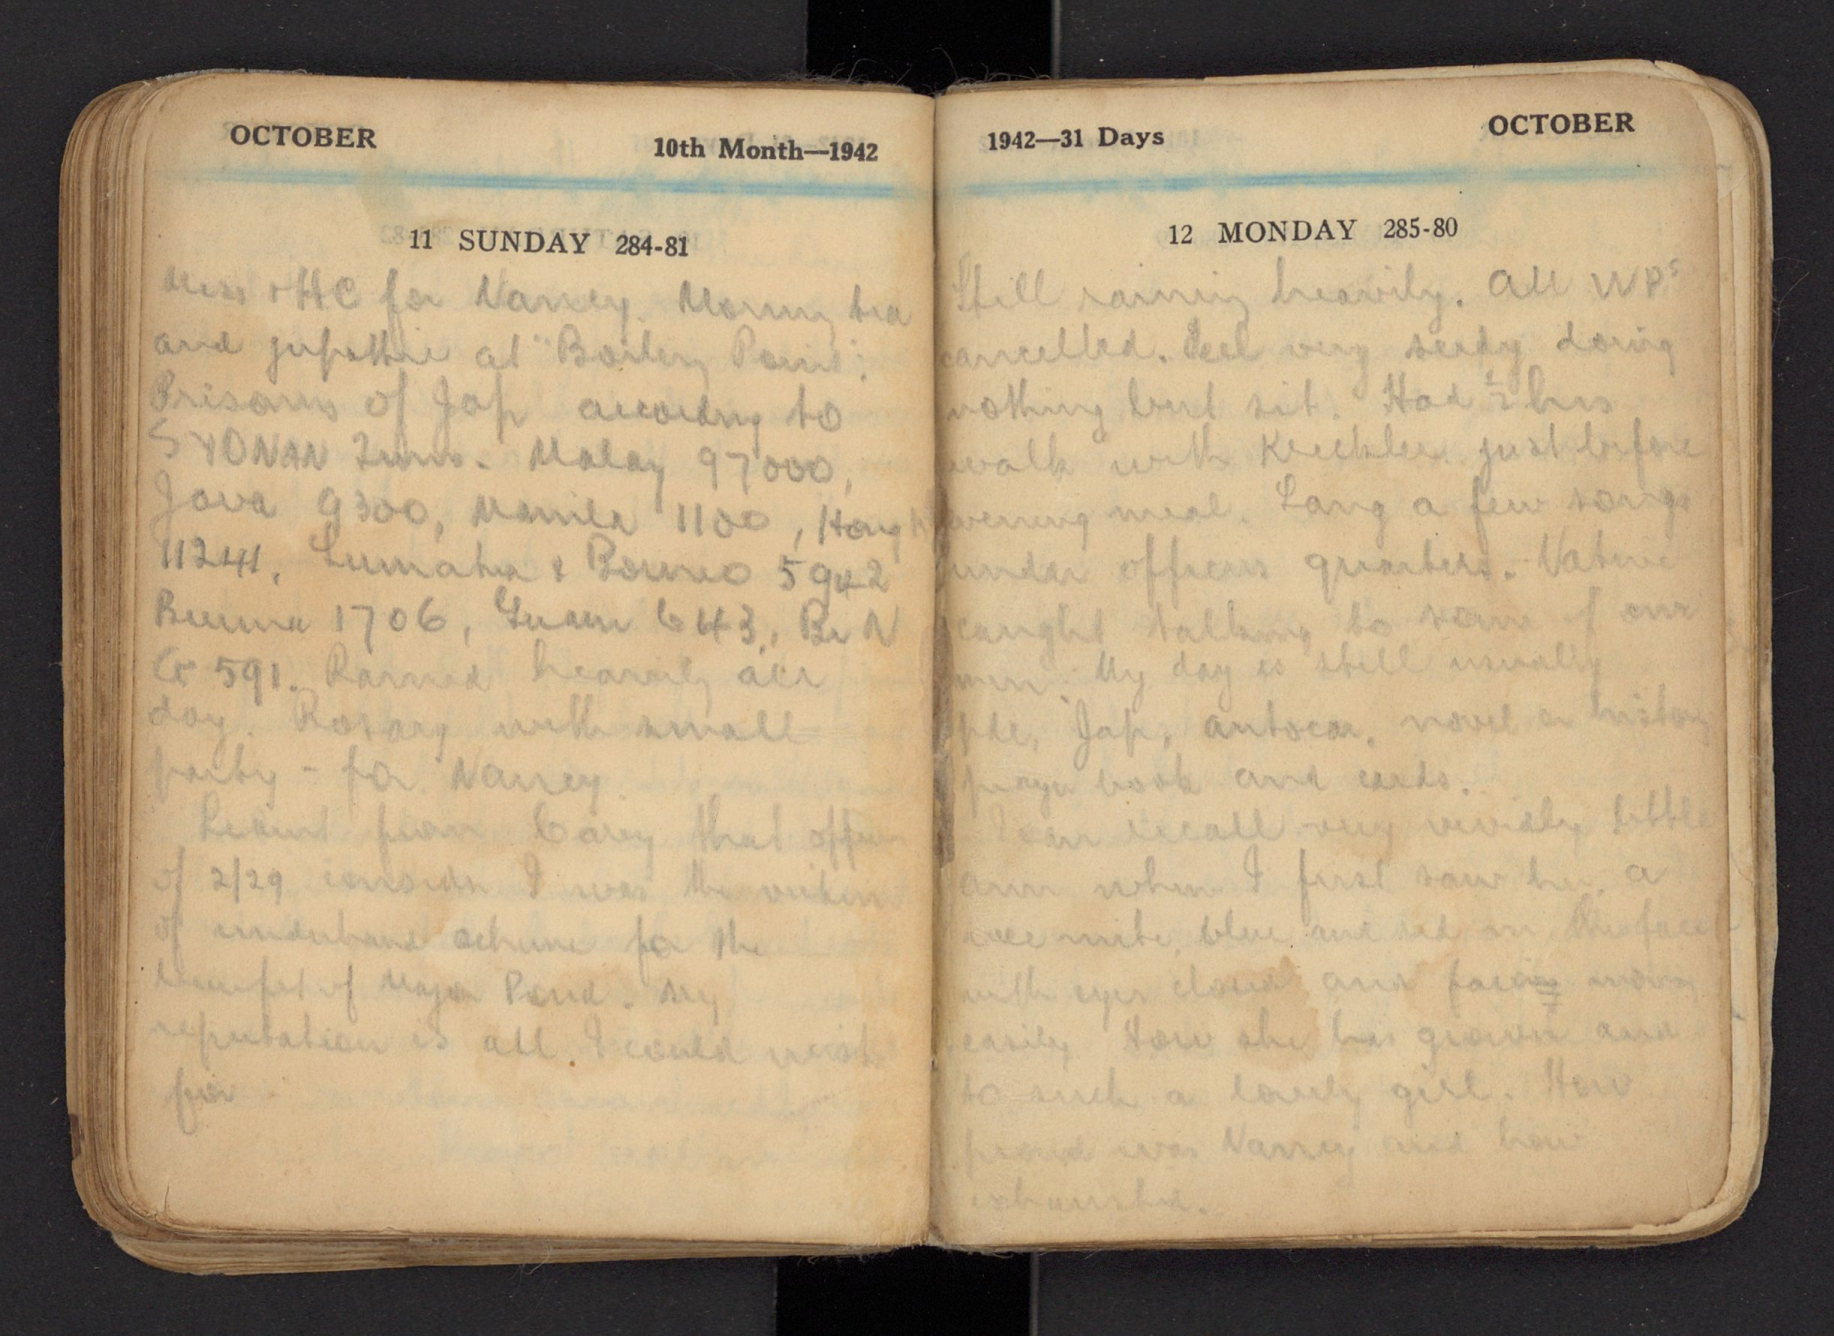 OCTOBER
10th Month—1942
11 SUNDAY 284-81
Mass + HC for Nancy. Morning tea
and at "Boiling Point".
Prisoners of Jap according to
SYONAN Times. Malay 97000,
Java 9300, Manila 1100, Hong K
11241, Sumatra & Borneo 5942
Burma 1706, Guam 643, Br N
G 591. Rained heavily all
day. Rosary with small
party - for Nancy.
Learnt from Carey that officers
of 2/29 consider I was the victim
of underhand scheme for the
benefit of Major Pond. My
reputation is all I could wish
for
1942—31 Days
OCTOBER
12 MONDAY 285-80
Still raining heavily. All WPs
cancelled. Feel very seedy doing
nothing but sit. Had ½ hrs
walk with just before
evening meal. Sang a few songs
under officers quarters. Native
caught talking to some of our
men. My day is still usually
pte, Jap, autocar, novel or history
prayer book and cards.
I can recall very vividly little
Ann when I first saw her, a
wee mite, blue and red in the face
with eyes closed and facing moving
easily. How she has grown and
to such a lovely girl. How
proud was Nancy and how
exhausted.